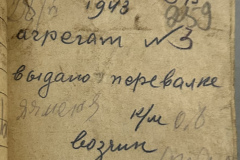 1943
агрегат №3
выдано перевалке
ячменя к/м 0,8
возчик